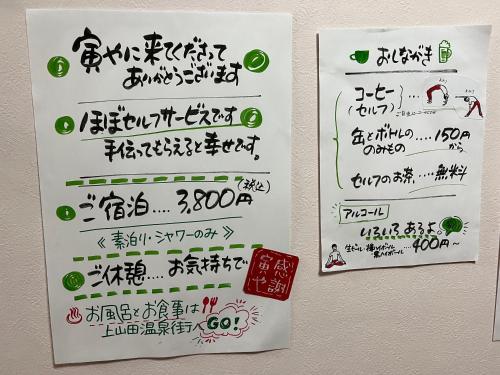 寅やに来てくださって
ありがとうございます
ほぼセルフサービスです
手伝ってもらえると幸せです。
ご宿泊.... 3,800円(税込)
《素泊り・シャワーのみ》
ご休憩.... お気持ちで
感謝
寅や
お風呂とお食事は
上山田温泉街へ GO!
おしながき
コーヒー
(セルフ)
缶とボトルの
のみもの .... 150円から。
セルフのお茶.... 無料
アルコール
いろいろあるよ。
400円~